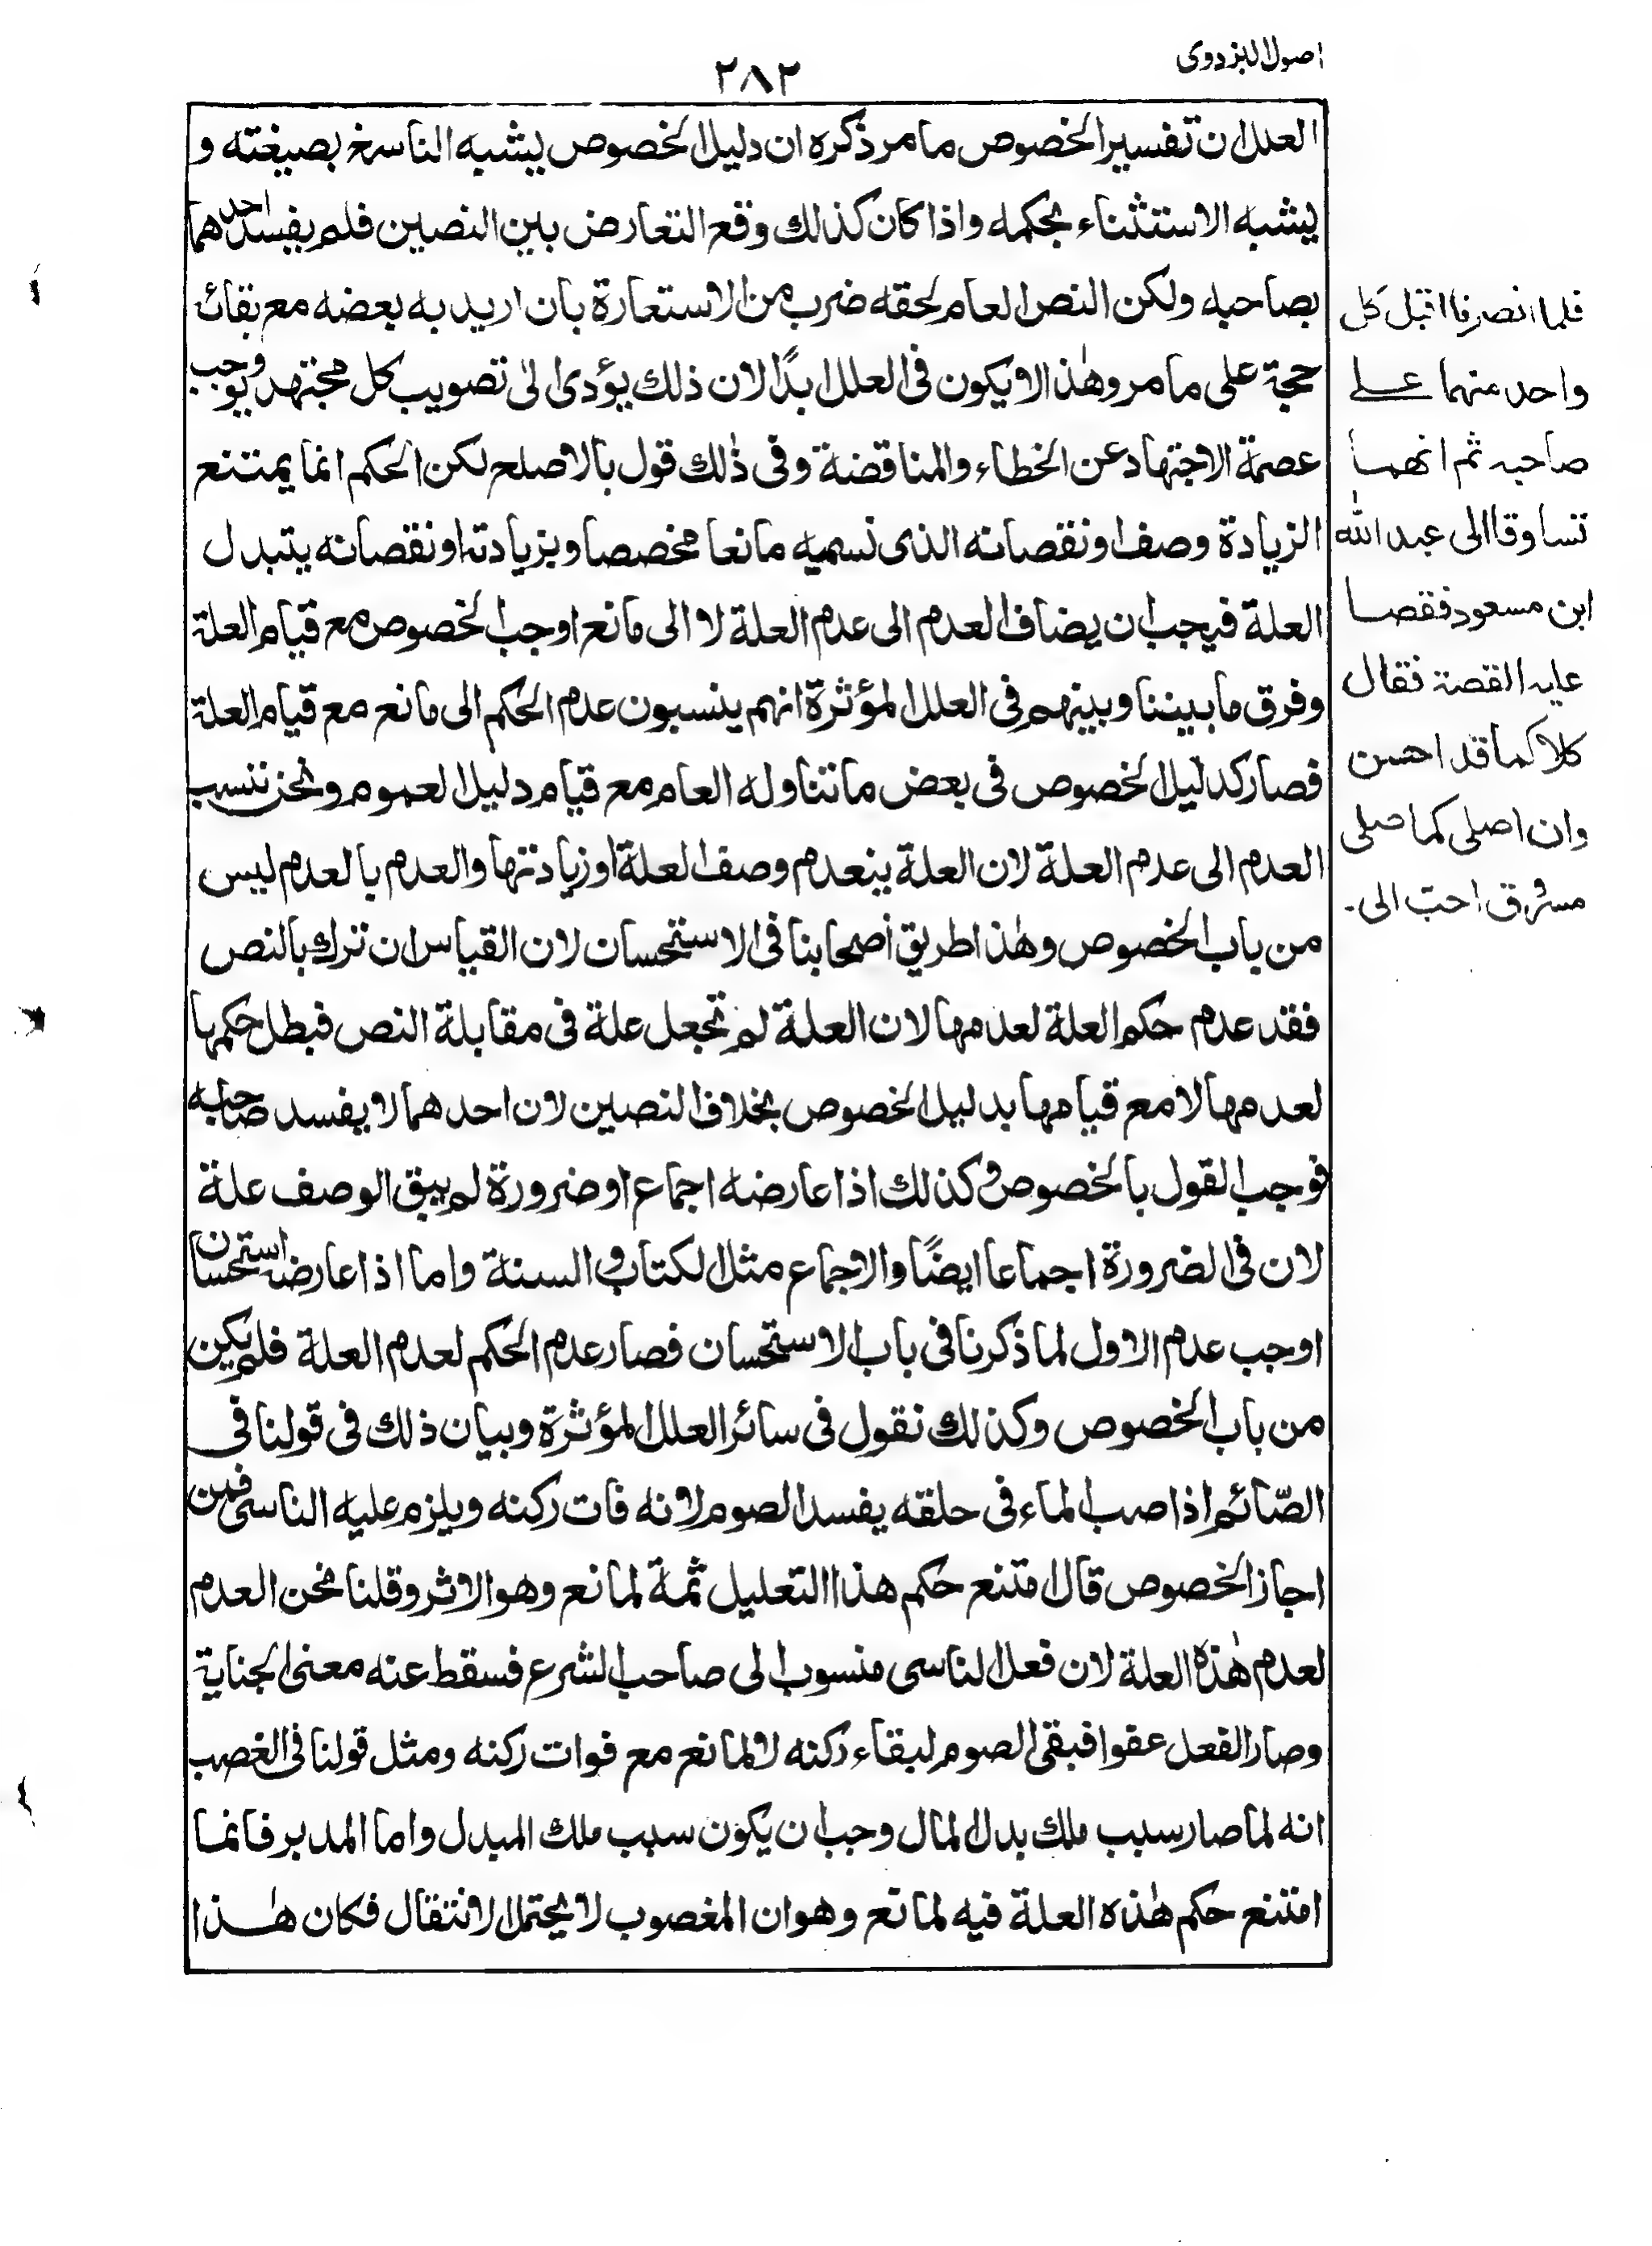 اصول البزدوى
٢٨٢
العلل ان تفسير الخصوص ما مر ذكره ان دليل الخصوص يشبه الناسخ بصيغته و
يشبه الاستثناء بحكمه واذا كان كذلك وقع التعارض بين النصين فلم يفسد احدهما
بصاحبه ولكن النص العام لحقه ضرب من الاستعارة بان اريد به بعضه مع بقائه
حجة على ما مر وهٰذا لا يكون فى العلل ابدًا لان ذلك يؤدى الىٰ تصويب كل مجتهد ويوجب
عصمة الاجتهاد عن الخطاء والمناقضة وفى ذٰلك قول بالاصلح لكن الحكم انما يمتنع
الزيادة وصف او نقصانه الذى نسميه مانعا مخصصا وبزيادته او نقصانه يتبدل
العلة فيجب ان يضاف العدم الى عدم العلة لا الى مانع اوجب الخصوص مع قيام العلة
وفرق ما بيننا وبينهم فى العلل المؤثرة انهم ينسبون عدم الحكم الى مانع مع قيام العلة
فصار كدليل الخصوص فى بعض ما تناوله العام مع قيام دليل العموم ونحن ننسب
العدم الى عدم العلة لان العلة ينعدم وصف العلة او زيادتها والعدم بالعدم ليس
من باب الخصوص وهٰذا طريق اصحابنا فى الاستحسان لان القياس ان ترك بالنص
فقد عدم حكم العلة لعدمها لان العلة لم تجعل علة فى مقابلة النص فبطل حكمها
لعدمها لا مع قيامها بدليل الخصوص بخلاف النصين لان احدهما لا يفسد صاحبه
فوجب القول بالخصوص وكذلك اذا عارضه اجماع او ضرورة لم يبق الوصف علة
لان فى الضرورة اجماعا ايضًا والاجماع مثل الكتاب والسنة واما اذا عارضه استحسان
اوجب عدم الاول لما ذكرنا فى باب الاستحسان فصار عدم الحكم لعدم العلة فلم يكن
من باب الخصوص وكذلك نقول فى سائر العلل المؤثرة وبيان ذلك فى قولنا فى
الصّائم اذا صب الماء فى حلقه يفسد الصوم لانه فات ركنه ويلزم عليه الناسى فمن
اجاز الخصوص قال امتنع حكم هذا التعليل ثمة لمانع وهو الاثر وقلنا نحن العدم
لعدم هٰذه العلة لان فعل الناسى منسوب الى صاحب الشرع فسقط عنه معنى الجناية
وصار الفعل عفوا فبقى الصوم لبقاء ركنه لا لمانع مع فوات ركنه ومثل قولنا فى الغصب
انه لما صار سبب ملك بدل المال وجب ان يكون سبب ملك المبدل واما المدبر فانما
امتنع حكم هٰذه العلة فيه لمانع وهو ان المغصوب لا يحتمل الانتقال فكان هٰذا
فلما انصرفا اقبل كل
واحد منهما على
صاحبه ثم انهما
تساوقا الى عبد الله
ابن مسعود فقصا
عليه القصة فقال
كلاكما قد احسن
وان اصلى كما صلى
مسروق احب الى۔